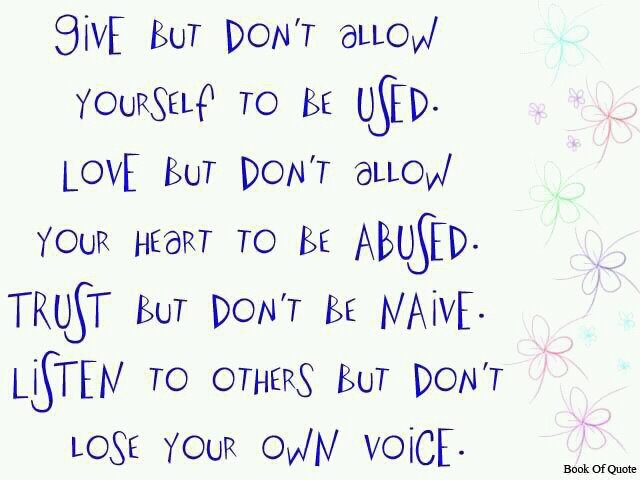 giVE BUT DON'T aLLOW
YOURSELf TO BE USED.
LOVE BUT DON'T aLLOW
YOUR HEaRT TO BE ABUSED.
TRUST BUT DON'T BE NAiVE.
LiSTEN TO OTHERS BUT DON'T
LOSE YOUR OWN VOiCE.
Book Of Quote